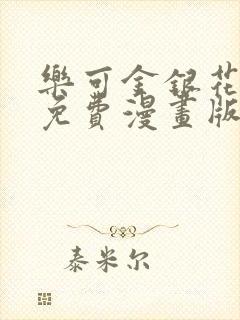 樂可金銀花
免費漫畫版
泰米尔